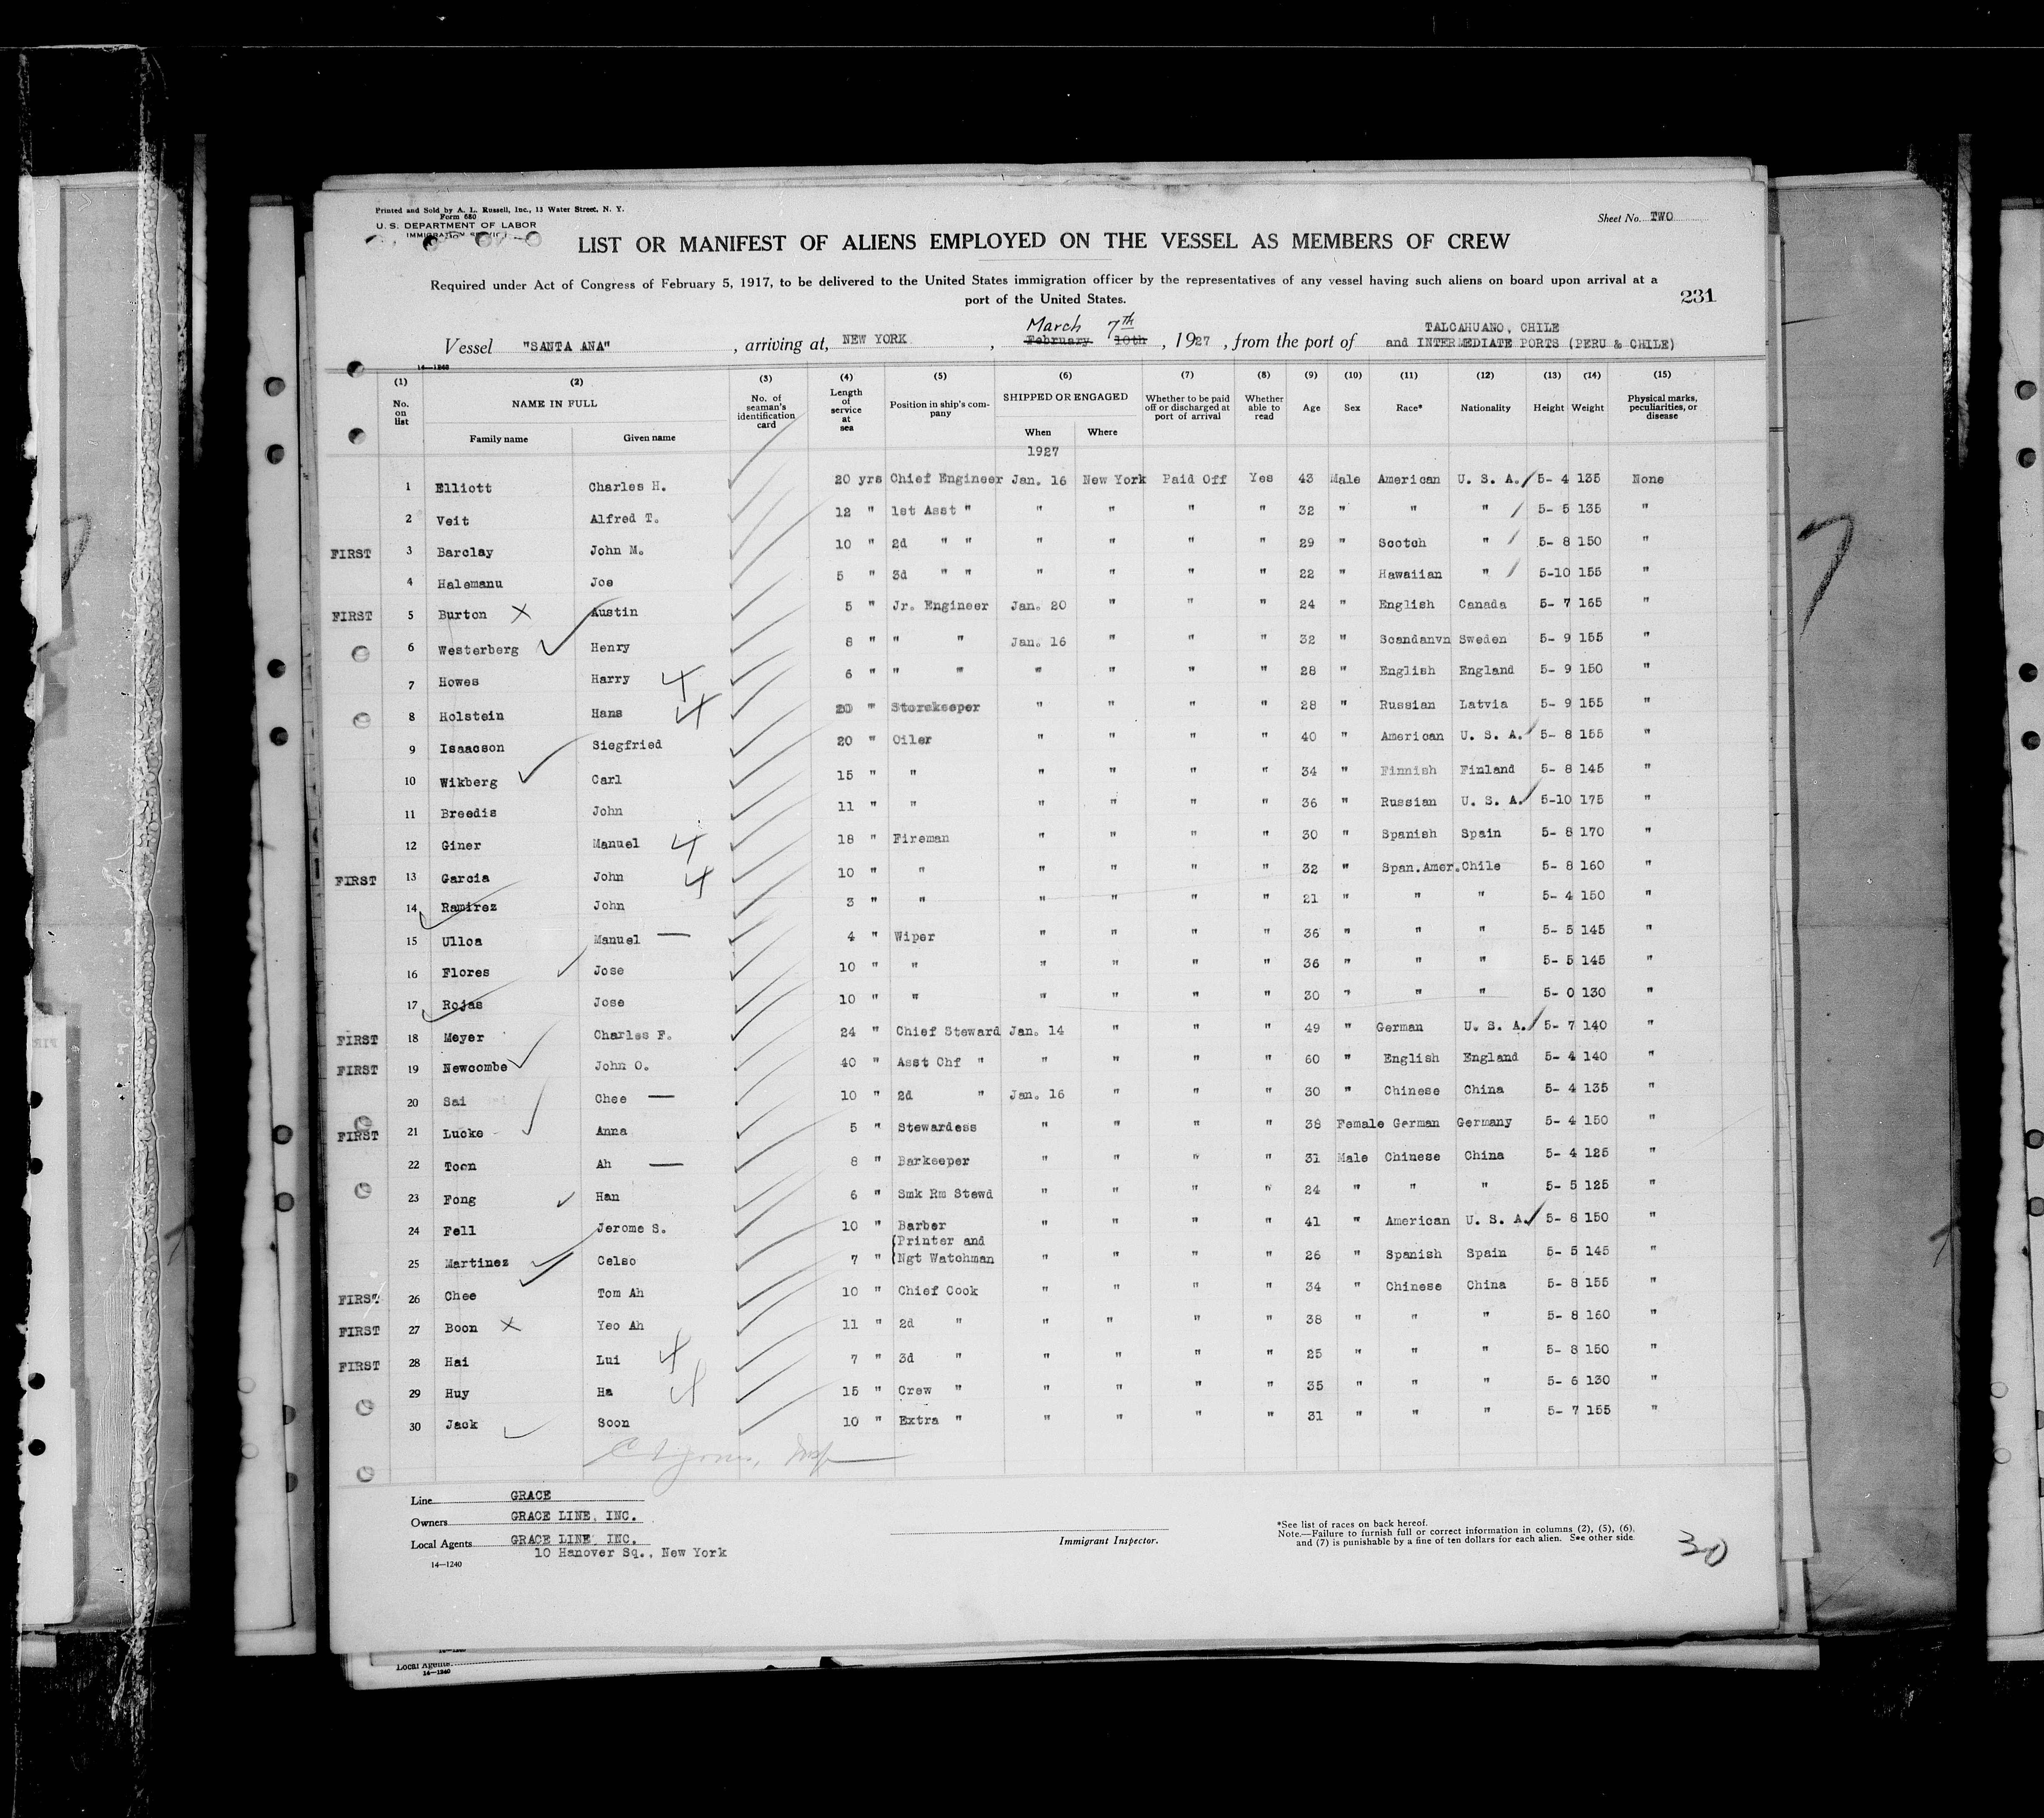 Printed and Sold by A. L. Russell, Inc., 13 Water Street, N. Y.
Form 680
U. S. DEPARTMENT OF LABOR
IMMIGRATION SERVICE
Sheet No. TWO
LIST OR MANIFEST OF ALIENS EMPLOYED ON THE VESSEL AS MEMBERS OF CREW
Required under Act of Congress of February 5, 1917, to be delivered to the United States immigration officer by the representatives of any vessel having such aliens on board upon arrival at a
port of the United States.
231
March 7th
TALCAHUANO, CHILE
Vessel "SANTA ANA", arriving at, NEW YORK, February 10th, 1927, from the port of and INTERMEDIATE PORTS (PERU & CHILE)
14—1240
(1) (2) (3) (4) (5) (6) (7) (8) (9) (10) (11) (12) (13) (14) (15)
No. on list NAME IN FULL No. of seaman's identification card Length of service at sea Position in ship's company SHIPPED OR ENGAGED Whether to be paid off or discharged at port of arrival Whether able to read Age Sex Race* Nationality Height Weight Physical marks, peculiarities, or disease
Family name Given name When Where
1927
1 Elliott Charles H. 20 yrs Chief Engineer Jan. 16 New York Paid Off Yes 43 Male American U. S. A. 5- 4 135 None
2 Veit Alfred T. 12 " 1st Asst " " " " " 32 " " " 5- 5 135 "
FIRST 3 Barclay John M. 10 " 2d " " " " " " 29 " Scotch " 5- 8 150 "
4 Halemanu Joe 5 " 3d " " " " " " 22 " Hawaiian " 5-10 155 "
FIRST 5 Burton X Austin 5 " Jr. Engineer Jan. 20 " " " 24 " English Canada 5- 7 165 "
6 Westerberg Henry 8 " " " Jan. 16 " " " 32 " Scandanvn Sweden 5- 9 155 "
7 Howes Harry 4 6 " " " " " " " 28 " English England 5- 9 150 "
8 Holstein Hans 4 20 " Storekeeper " " " " 28 " Russian Latvia 5- 9 155 "
9 Isaacson Siegfried 20 " Oiler " " " " 40 " American U. S. A. 5- 8 155 "
10 Wikberg Carl 15 " " " " " " 34 " Finnish Finland 5- 8 145 "
11 Breedis John 11 " " " " " " 36 " Russian U. S. A. 5-10 175 "
12 Giner Manuel 4 18 " Fireman " " " " 30 " Spanish Spain 5- 8 170 "
FIRST 13 Garcia John 4 10 " " " " " " 32 " Span.Amer. Chile 5- 8 160 "
14 Ramirez John 3 " " " " " " 21 " " " 5- 4 150 "
15 Ulloa Manuel — 4 " Wiper " " " " 36 " " " 5- 5 145 "
16 Flores Jose 10 " " " " " " 36 " " " 5- 5 145 "
17 Rojas Jose 10 " " " " " " 30 " " " 5- 0 130 "
FIRST 18 Meyer Charles F. 24 " Chief Steward Jan. 14 " " " 49 " German U. S. A. 5- 7 140 "
FIRST 19 Newcombe John O. 40 " Asst Chf " " " " " 60 " English England 5- 4 140 "
20 Sai Chee — 10 " 2d " Jan. 16 " " " 30 " Chinese China 5- 4 135 "
FIRST 21 Lucke Anna 5 " Stewardess " " " " 38 Female German Germany 5- 4 150 "
22 Toon Ah — 8 " Barkeeper " " " " 31 Male Chinese China 5- 4 125 "
23 Fong Han 6 " Smk Rm Stewd " " " " 24 " " " 5- 5 125 "
24 Fell Jerome S. 10 " Barber " " " " 41 " American U. S. A. 5- 8 150 "
(Printer and
25 Martinez Celso 7 " (Ngt Watchman " " " " 26 " Spanish Spain 5- 5 145 "
FIRST 26 Chee Tom Ah 10 " Chief Cook " " " " 34 " Chinese China 5- 8 155 "
FIRST 27 Boon X Yeo Ah 11 " 2d " " " " " 38 " " " 5- 8 160 "
FIRST 28 Hai Lui 4 7 " 3d " " " " " 25 " " " 5- 8 150 "
29 Huy Ha 4 15 " Crew " " " " " 35 " " " 5- 6 130 "
30 Jack Soon 10 " Extra " " " " " 31 " " " 5- 7 155 "
Line GRACE
Owners GRACE LINE, INC.
Local Agents GRACE LINE, INC.
10 Hanover Sq., New York
14—1240
Immigrant Inspector.
*See list of races on back hereof.
Note.—Failure to furnish full or correct information in columns (2), (5), (6),
and (7) is punishable by a fine of ten dollars for each alien. See other side.
30
Local Agents
14—1240